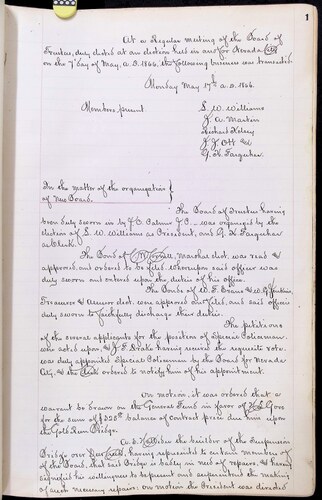 1
At a Regular meeting of the Board of
Trustees, duly elected at an election held in and for Nevada City
on the 7th day of May, A.D. 1866, the following business was transacted
Monday May 17th A.D. 1866.
Members present
L. W. Williams
J. A. Martin
J. J. Ott and
G. K. Farquhar
In the matter of the organization
of the Board.
The Board of Trustees having
been duly sworn in by J. C. Palmer J.P. was organized by the
election of L. W. Williams as President, and G. K. Farquhar
as Clerk.
The Bond of Marshal elect, was read &
approved, and ordered to be filed. Whereupon said officer was
duly sworn and entered upon the duties of his office.
The Bonds of W. F. Evans & W. D.
Treasurer & Assessor elect, were approved and filed, and said officers
duly sworn to faithfully discharge their duties.
The petitions
of the several applicants for the position of Special Policeman,
were acted upon, & J. F. Drake having received the requisite vote,
was duly appointed Special Policeman by the Board for Nevada
City, & the Clerk ordered to notify him of his appointment.
On motion, it was ordered that a
warrant be drawn on the General Fund in favor of Gove
for the sum of balance of contract price due him upon
the Gold Run Bridge.
A. S. Hallidie the builder of the Suspension
Bridge over having represented to certain members of
the Board, that said Bridge is sadly in need of repairs, & having
signified his willingness to superintend the making
of such necessary repairs: on motion the President was directed